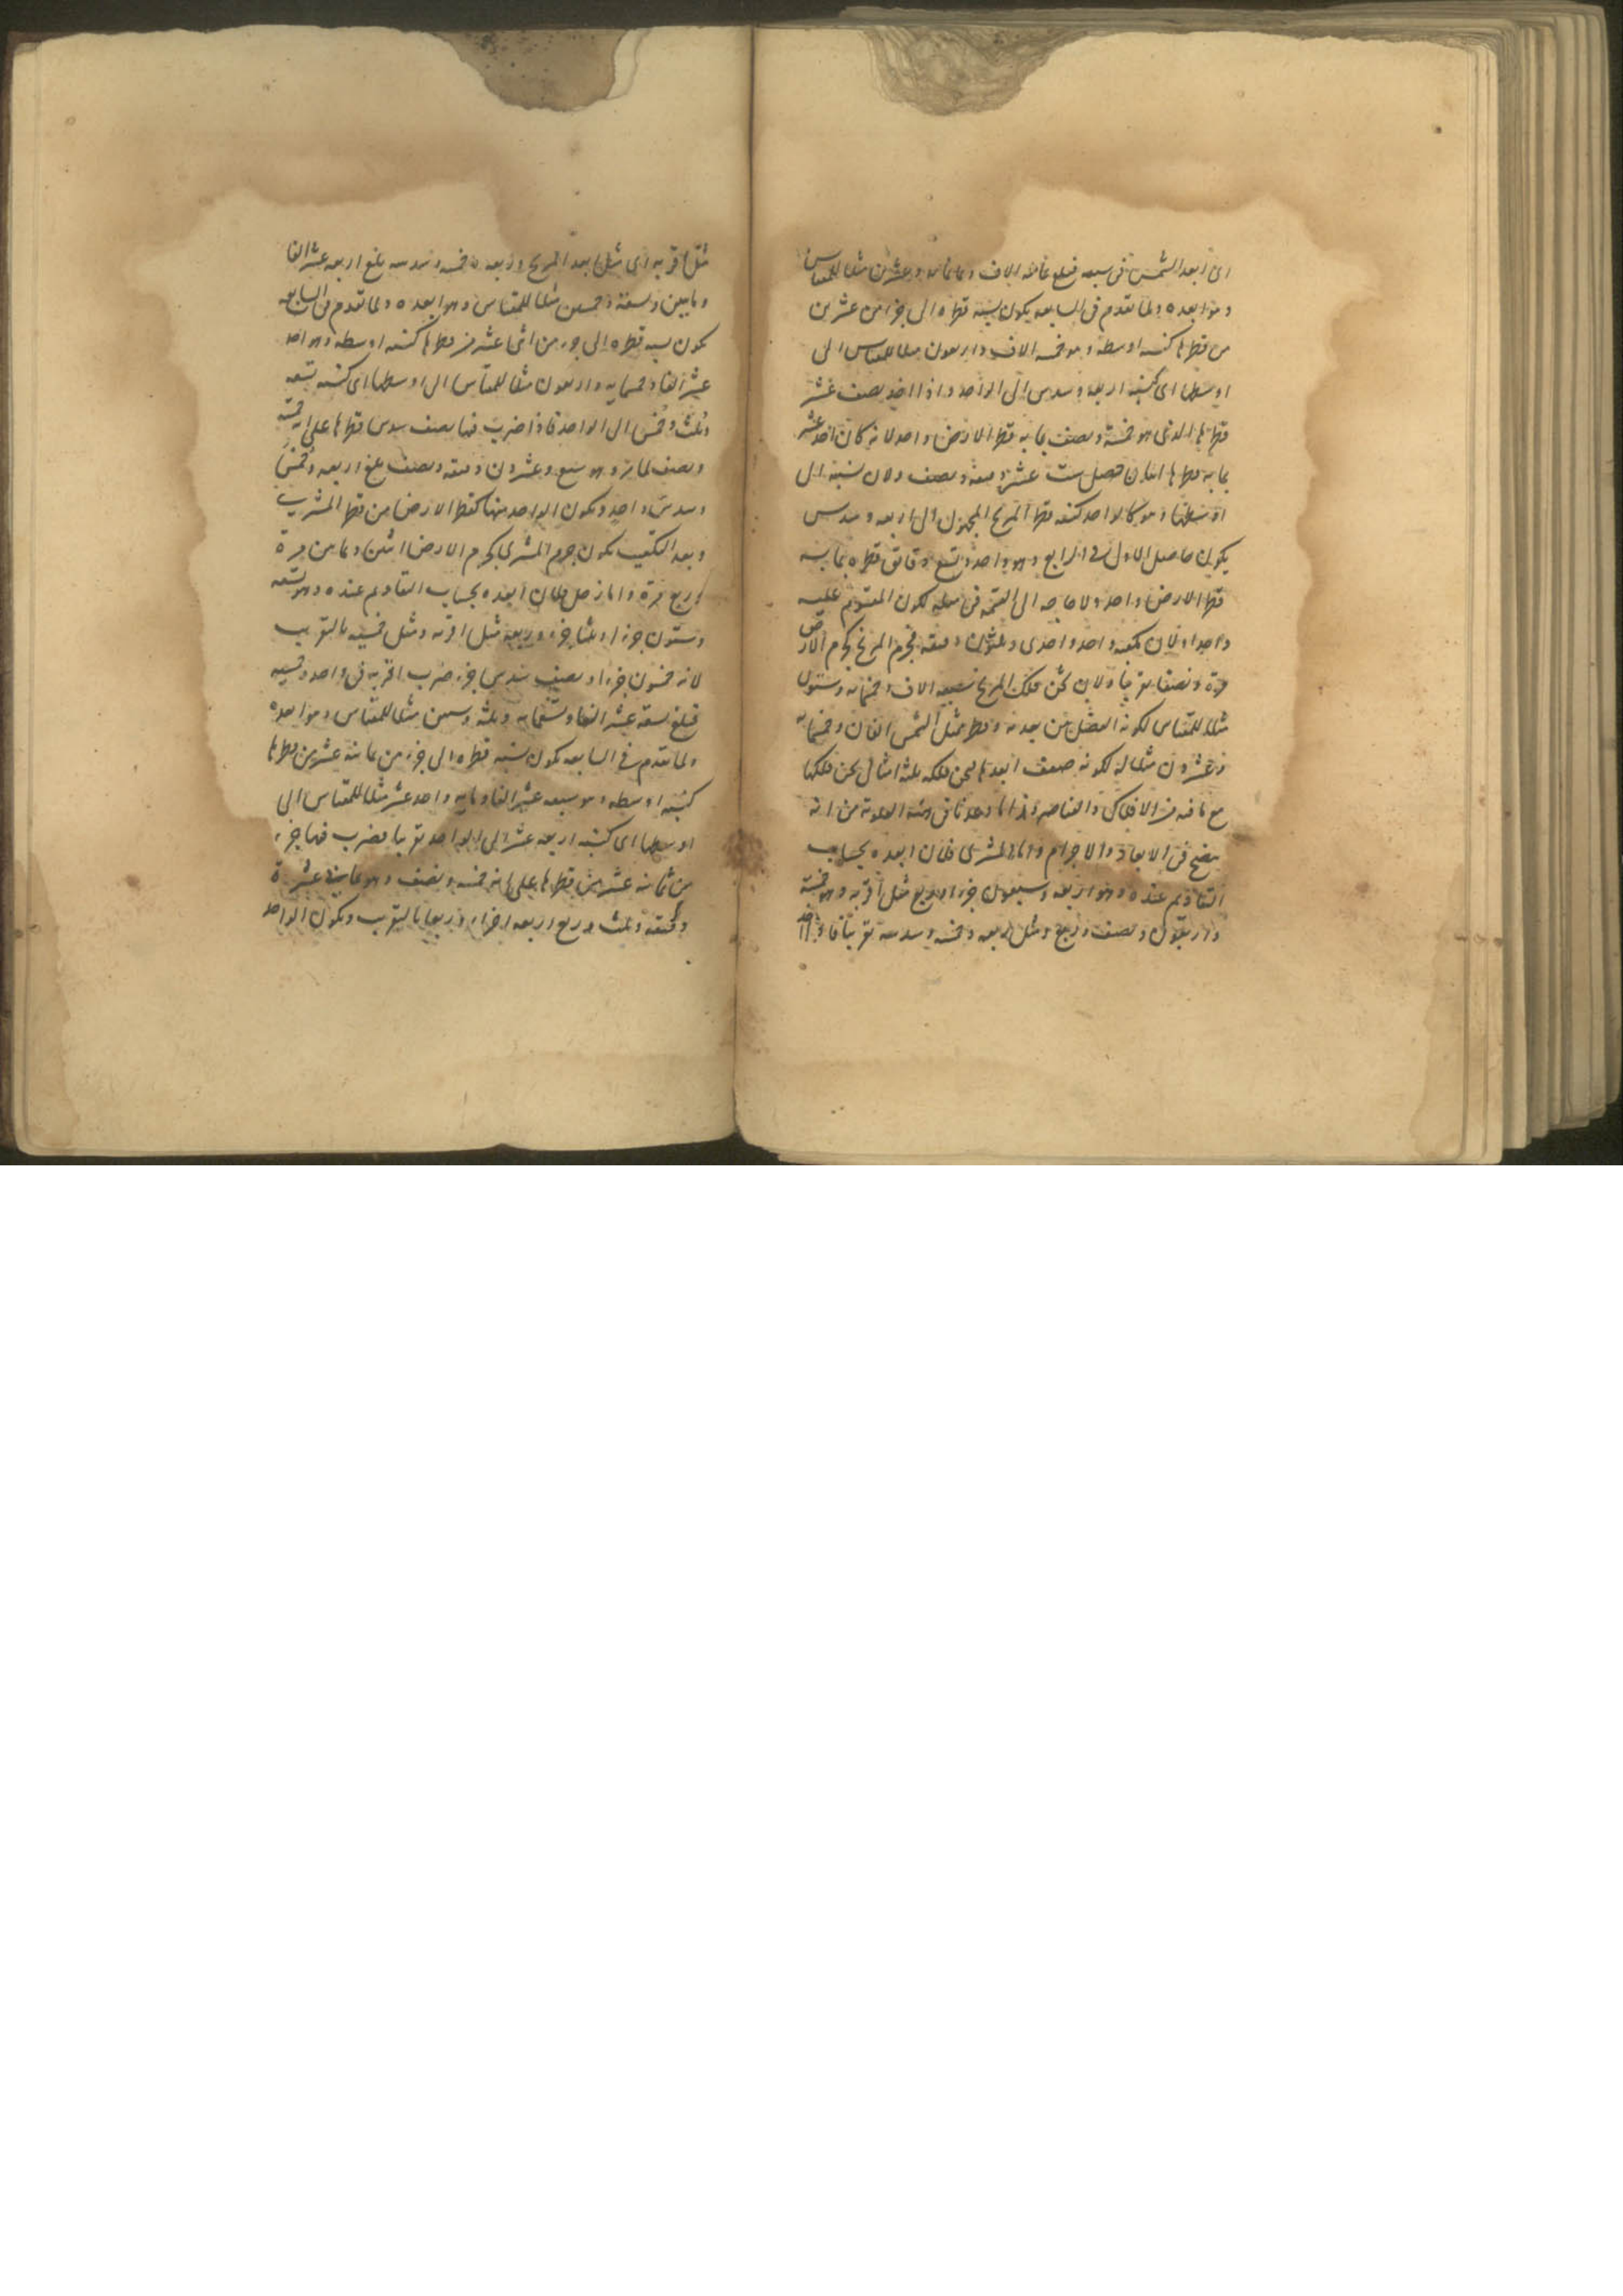 اى ابعد الشمس فى سبعه فبلغ ثمانيه الاف وثمانمائه وعشرين مثلا للمقياس
وهو ابعده ولما تقدم فى السابعه يكون نسبة قطره الى جزء من عشرين
من قطرها كنسبه اوسطه وهو خمسه الاف واربعون مثلا للمقياس الى
اوسطها اى كنسبه اربعه وسدس الى الواحد واذا اخذ نصف عشر
قطرها الذى هو خمسة ونصف بما به قطر الارض واحد لانه كان احد عشر
بما به قطرها اثنان حصل ست عشرة دقيقة ونصف ولان نسبة الى
اوسطها وهو كالواحد كنسبه قطر المريخ المجهول الى اربعه وسدس
يكون حاصل الاول فى الرابع وهو واحد وتسع دقائق قطره بما به
قطر الارض واحد ولا حاجه الى القسمه فى مثله لكون المقسوم عليه
واحدا ولان مكعبه واحد واحدى وثلثون دقيقه فجرم المريخ كجرم الارض
مرة ونصفا تقريبا ولان ثخن فلك المريخ سبعه الاف وخمسمائه وستون
مثلا للمقياس لكونه الفضل بين بعديه وقطر ممثل الشمس الفان وخمسمائه
وعشرون مثلا له لكونه ضعف ابعدها ثخن فلكه ثلثه امثال ثخن فلكها
مع ما فيه من الافلاك والعناصر وهذا ما وعدنا فى هيئه العلويه من انه
يتضح فى الابعاد والاجرام واما المشترى فلان ابعده بحساب
التقاويم عنده وهو اربعه وسبعون جزءا وربع مثل اقربه وهو خمسة
واربعون ونصف وربع ومثل اربعه وخمسه وسدسه تقريبا فاذا اخذ
مثل اقربه اى مثل ابعد المريخ واربعه وخمسه وسدسه بلغ اربعه عشر الفا
ومايتين وتسعة وخمسين مثلا للمقياس وهو ابعده ولما تقدم فى السابعه
يكون نسبه قطره الى جزء من اثنى عشر من قطرها كنسبه اوسطه وهو احد
عشر الفا وخمسمايه واربعون مثلا للمقياس الى اوسطها اى كنسبه تسعه
وثلث وخمس الى الواحد فاذا ضرب فيها نصف سدس قطرها على انه خمسة
ونصف لما مر وهو سبع وعشرون دقيقه ونصف بلغ اربعه وخمسا
وسدس واحد ويكون الواحد منها كقطر الارض من قطر المشترى
وبعد التكعيب يكون جرم المشترى كجرم الارض اثنين وثمانين مرة
وربع مرة واما زحل فلان ابعده بحساب التقاويم عنده وهو تسعه
وستون جزءا وثلثا جزء وربعه مثل اقربه ومثل خمسيه بالتقريب
لانه خمسون جزءا ونصف سدس جزء ضرب اقربه فى واحد وخمسيه
فبلغ تسعه عشر الفا وتسعمايه وثلثه وستين مثلا للمقياس وهو ابعده
ولما تقدم فى السابعه يكون نسبه قطره الى جزء من ثمانيه عشر من قطرها
كنسبه اوسطه وهو سبعه عشر الفا ومايه واحد عشر مثلا للمقياس الى
اوسطها اى كنسبه اربعه عشر الى الواحد تقريبا فضرب فيها جزء
من ثمانيه عشر من قطرها على انه خمسه ونصف وهو ثمانية عشرة
دقيقه وثلث وربع اربعه اجزاء وربعا بالتقريب ويكون الواحد